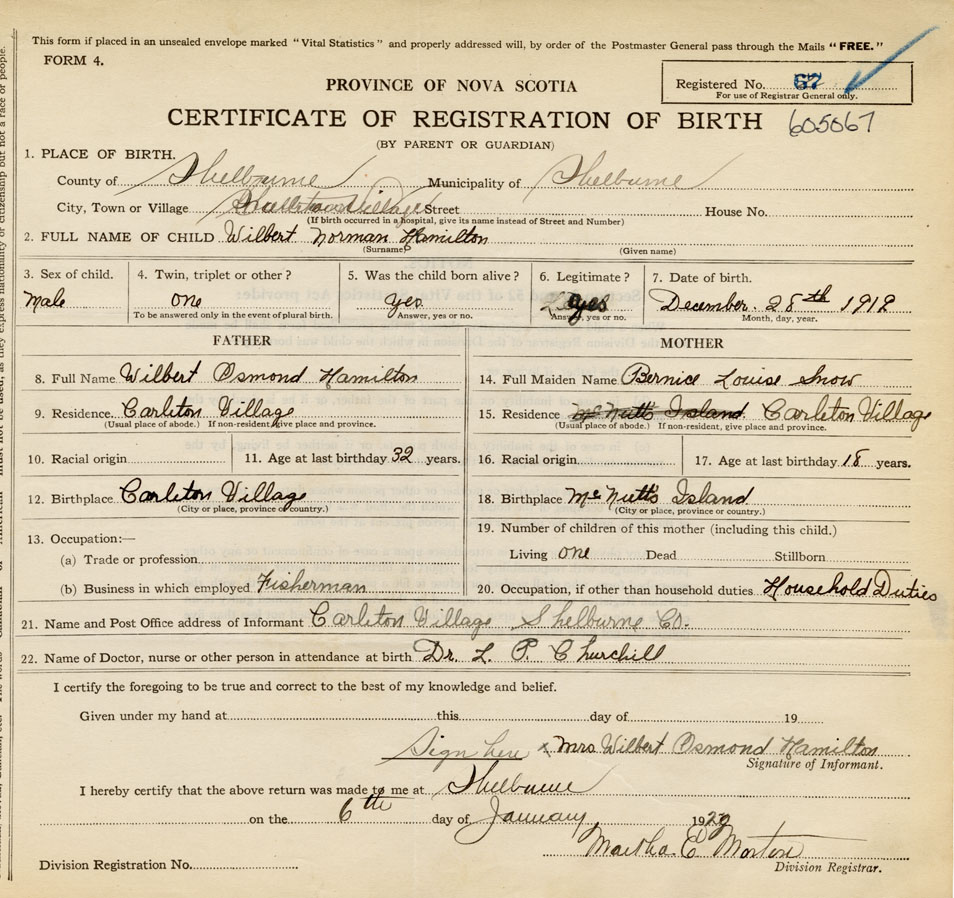 This form if placed in an unsealed envelope marked "Vital Statistics" and properly addressed will, by order of the Postmaster General pass through the Mails "FREE."
FORM 4.
Registered No. 67
For use of Registrar General only.
PROVINCE OF NOVA SCOTIA
CERTIFICATE OF REGISTRATION OF BIRTH 605067
(BY PARENT OR GUARDIAN)
1. PLACE OF BIRTH.
County of Shelburne Municipality of Shelburne
City, Town or Village Village Street House No.
(If birth occurred in a hospital, give its name instead of Street and Number)
2. FULL NAME OF CHILD Wilbert Norman Hamilton
(Surname) (Given name)
3. Sex of child. 4. Twin, triplet or other? 5. Was the child born alive? 6. Legitimate? 7. Date of birth.
Male one yes yes December 28th 1918
To be answered only in the event of plural birth. Answer, yes or no. Answer, yes or no. Month, day, year.
FATHER MOTHER
8. Full Name Wilbert Osmond Hamilton 14. Full Maiden Name Bernice Louise Snow
9. Residence. Carleton Village 15. Residence McNutt's Island. Carleton Village
(Usual place of abode.) If non-resident, give place and province. (Usual place of abode.) If non-resident, give place and province.
10. Racial origin 11. Age at last birthday 32 years. 16. Racial origin 17. Age at last birthday 18 years.
12. Birthplace Carleton Village 18. Birthplace McNutt's Island
(City or place, province or country.) (City or place, province or country.)
13. Occupation:— 19. Number of children of this mother (including this child.)
(a) Trade or profession Living one Dead Stillborn
(b) Business in which employed Fisherman 20. Occupation, if other than household duties Household Duties
21. Name and Post Office address of Informant Carleton Village Shelburne Co.
22. Name of Doctor, nurse or other person in attendance at birth Dr. L. P. Churchill
I certify the foregoing to be true and correct to the best of my knowledge and belief.
Given under my hand at this day of 19
Sign here x Mrs Wilbert Osmond Hamilton
Signature of Informant.
I hereby certify that the above return was made to me at Shelburne
on the 6th day of January 1929
Martha E Morton
Division Registration No. Division Registrar.